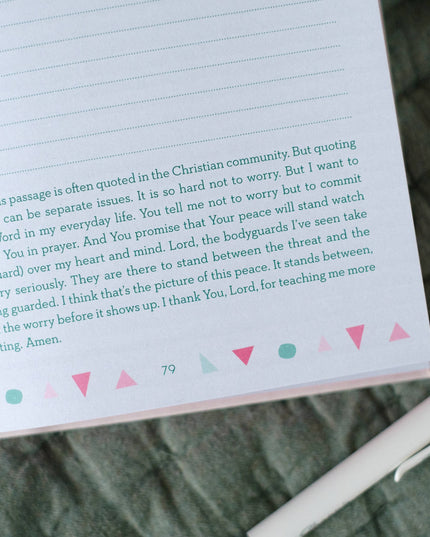 s passage is often quoted in the Christian community. But quoting
can be separate issues. It is so hard not to worry. But I want to
Word in my everyday life. You tell me not to worry but to commit
You in prayer. And You promise that Your peace will stand watch
uard) over my heart and mind. Lord, the bodyguards I've seen take
ry seriously. They are there to stand between the threat and the
ng guarded. I think that's the picture of this peace. It stands between,
the worry before it shows up. I thank You, Lord, for teaching me more
ting. Amen.
79